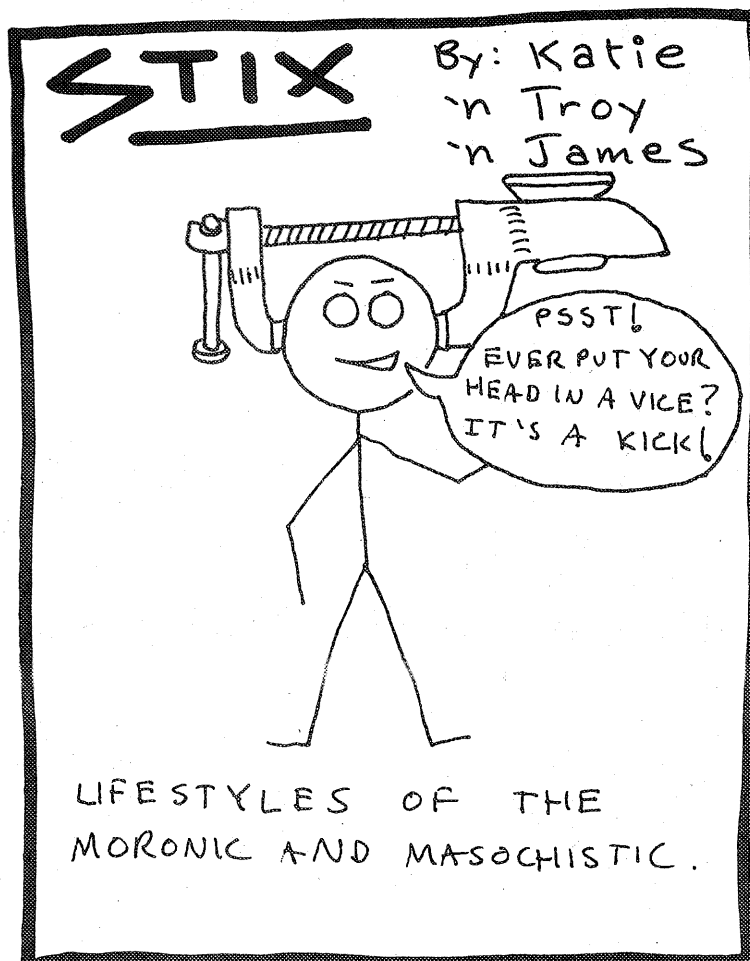 STIX
By: Katie
'n Troy
'n James
PSST!
EVER PUT YOUR
HEAD IN A VICE?
IT'S A KICK!
LIFESTYLES OF THE
MORONIC AND MASOCHISTIC.